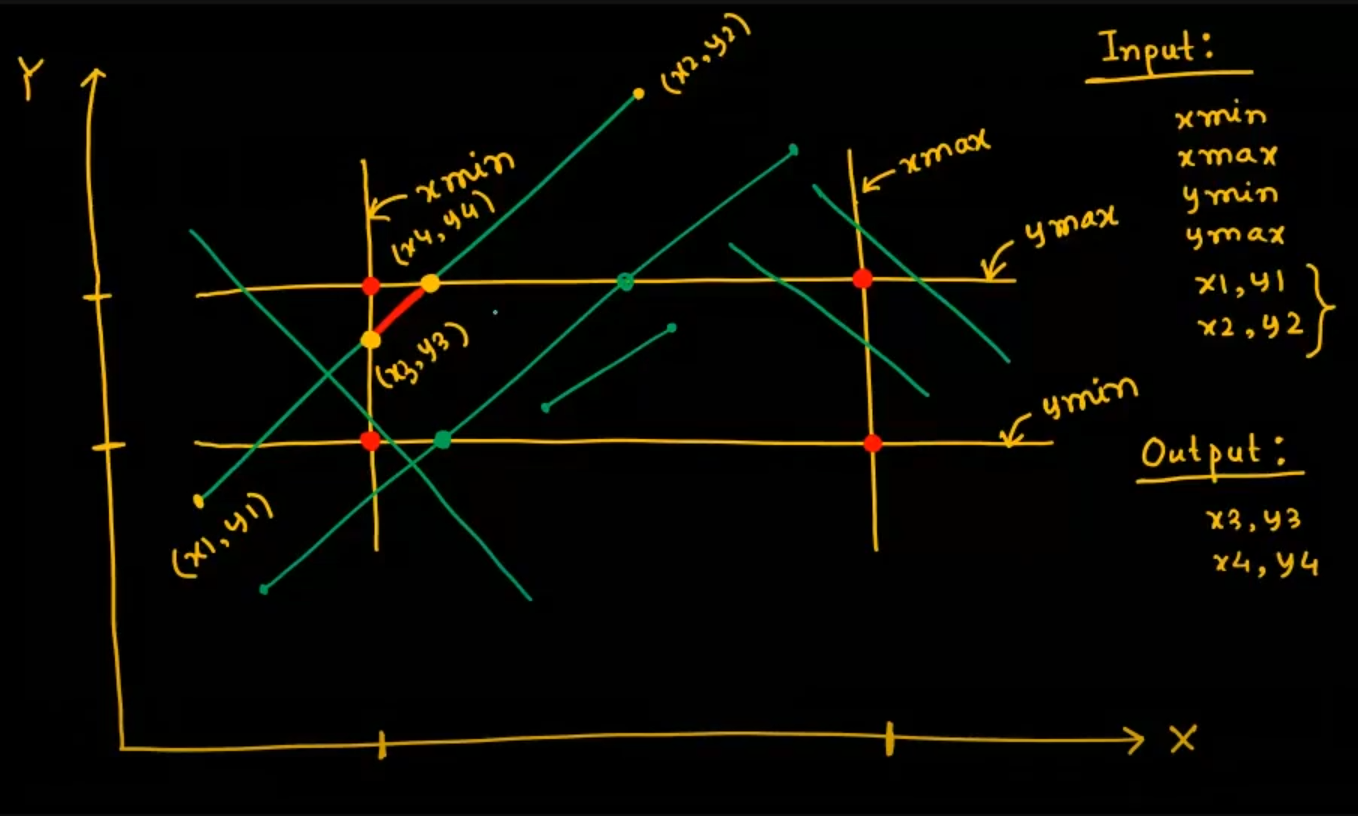 Y
(x2,y2)
xmin
(x4,y4)
xmax
ymax
(x3,y3)
ymin
(x1,y1)
X
Input:
xmin
xmax
ymin
ymax
x1,y1
x2,y2
Output:
x3,y3
x4,y4